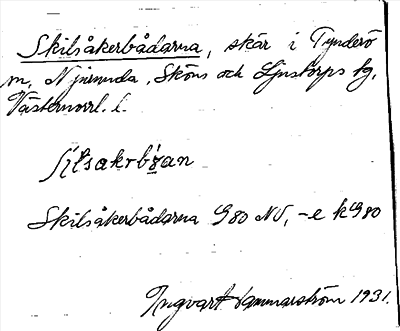 Skilsåkerbådarna, skär i Tynderö
m. Njurunda, Sköns och Ljustorps tg,
Västernorrl. l.
Skilsåkerbådarna G80 NV, -e k G80
Ingvart Hammarström 1931.